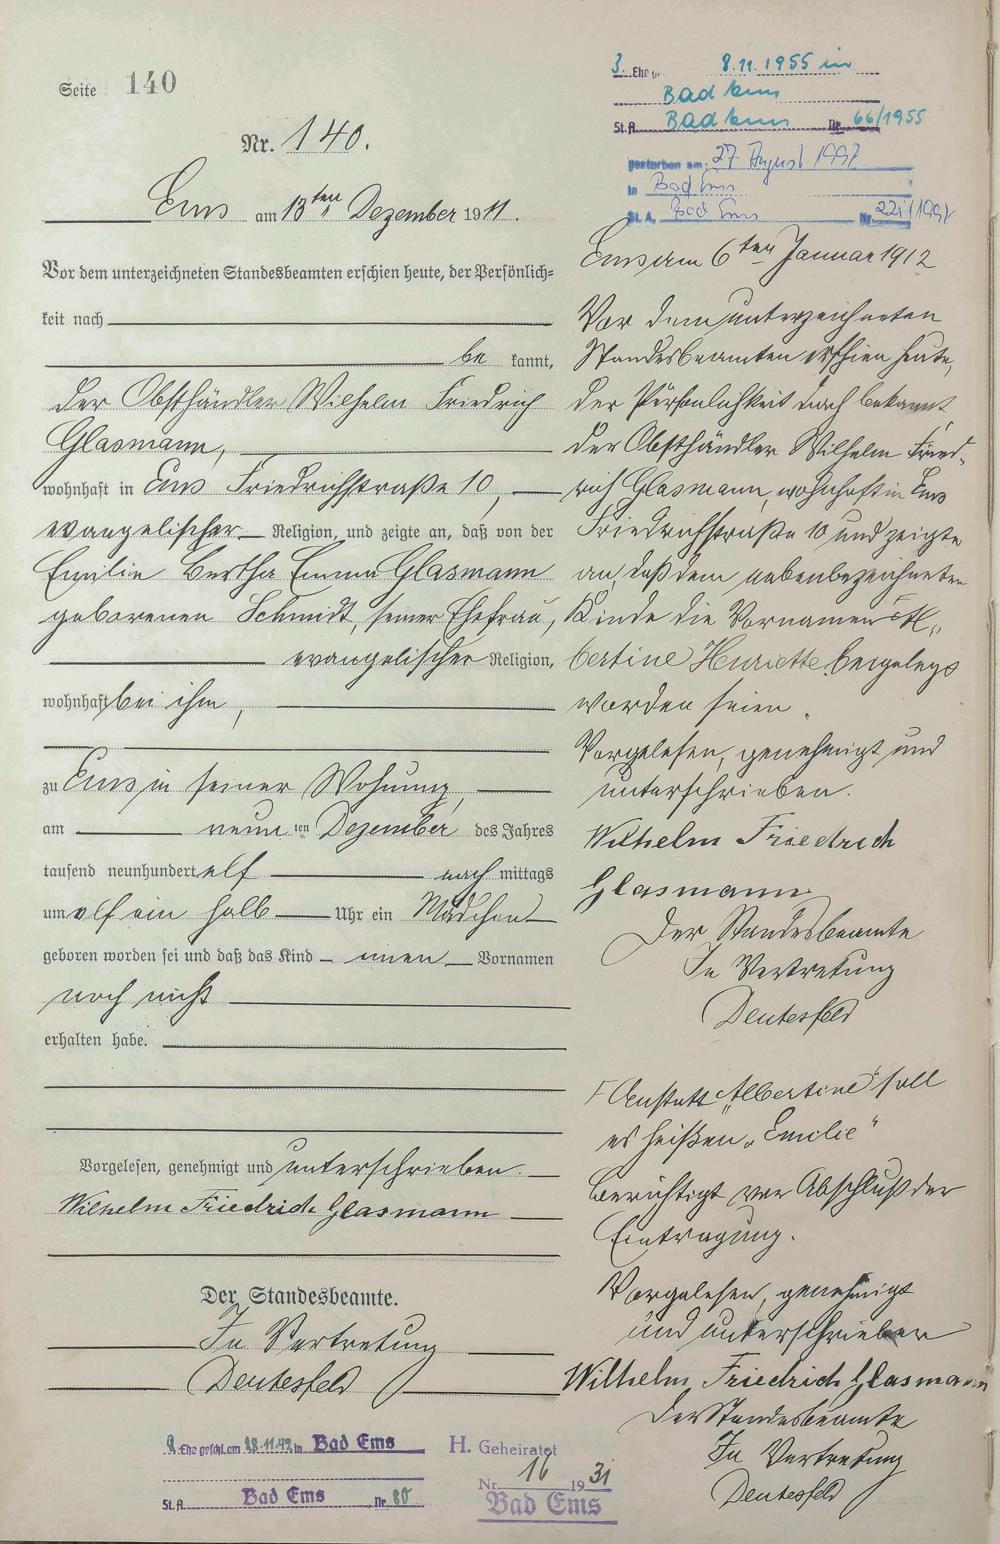 Seite 140
Nr. 140.
Ems am 13ten Dezember 1911.
Vor dem unterzeichneten Standesbeamten erschien heute, der Persönlich=
keit nach
be kannt,
der Obsthändler Wilhelm Friedrich
Glasmann,
wohnhaft in Ems Friedrichstraße 10,
evangelischer Religion, und zeigte an, daß von der
Emilie Bertha Emma Glasmann
geborenen Schmidt, seiner Ehefrau,
evangelischer Religion,
wohnhaft bei ihm,
zu Ems in seiner Wohnung,
am neun ten Dezember des Jahres
tausend neunhundert elf nach mittags
um elf ein halb Uhr ein Mädchen
geboren worden sei und daß das Kind einen Vornamen
noch nicht
erhalten habe.
Vorgelesen, genehmigt und unterschrieben.
Wilhelm Friedrich Glasmann
Der Standesbeamte.
In Vertretung
Deutesfeld
Ehe geschl. am 28.11.42 in Bad Ems
St. A. Bad Ems Nr. 80
H. Geheiratet
Nr. 16 1931
Bad Ems
3. Ehe 8.11.1955 in
Bad Ems
St. A. Bad Ems Nr. 66/1955
gestorben am: 27 August
in Bad Ems
St. A. Bad Ems Nr.
Ems am 6ten Januar 1912
Vor dem unterzeichneten
Standesbeamten erschien heute,
der Persönlichkeit nach bekannt,
der Obsthändler Wilhelm Fried-
rich Glasmann, wohnhaft in Ems
Friedrichstraße 10 und zeigte
an, daß dem nebenbezeichneten
Kinde die Vornamen Al„
bertine Henriette beigelegt
worden seien.
Vorgelesen, genehmigt und
unterschrieben.
Wilhelm Friedrich
Glasmann
Der Standesbeamte
In Vertretung
Deutesfeld
Anstatt „Albertine“ soll
es heißen „Emilie“
Berichtigt vor Abschluß der
Eintragung.
Vorgelesen, genehmigt
und unterschrieben
Wilhelm Friedrich Glasmann
Der Standesbeamte
In Vertretung
Deutesfeld